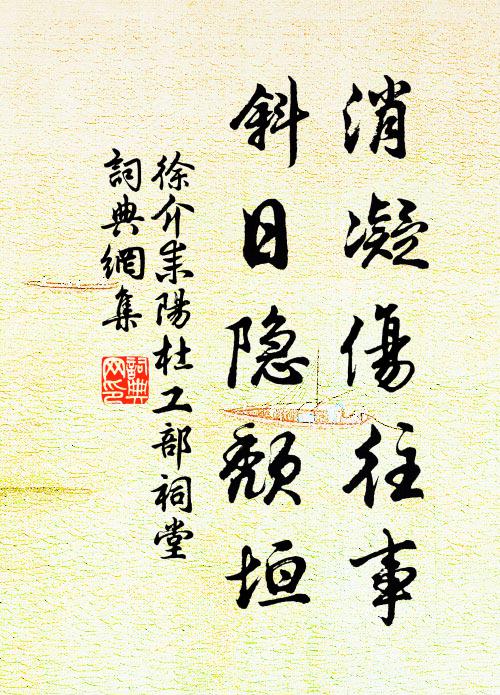 消凝傷往事
斜日隐颓垣
徐介耒陽杜工部祠堂
詞典網集
詞典
网印